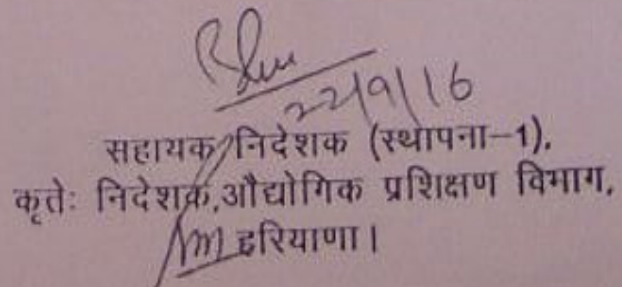 22/9/16
सहायक निदेशक (स्थापना-1),
कृतेः निदेशक,औद्योगिक प्रशिक्षण विभाग,
हरियाणा।